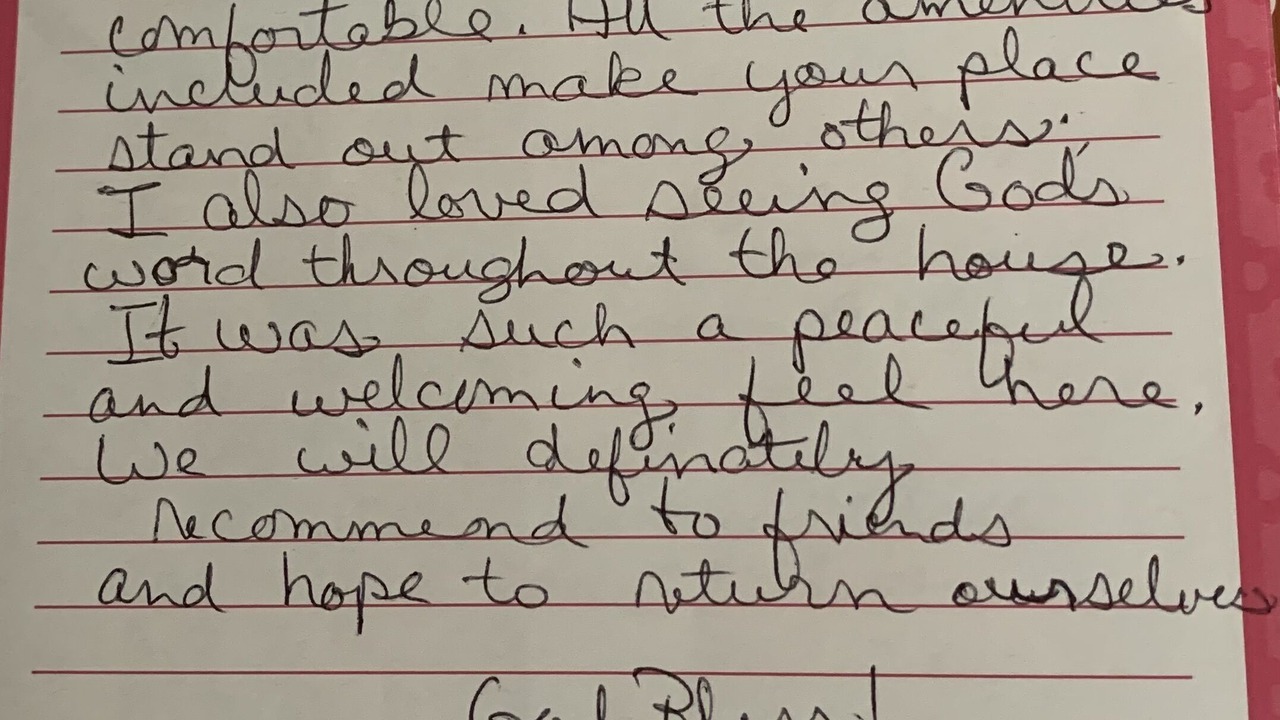 comfortable. All the amenities
included make your place
stand out among others.
I also loved seeing God's
word throughout the house.
It was such a peaceful
and welcoming feel here.
We will definately
recommend to friends
and hope to return ourselves
God Bless!